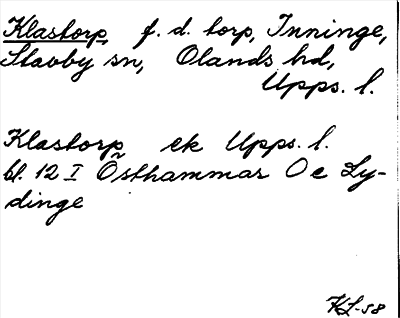 Klastorp, f. d. torp, Inninge,
Stavby sn, Olands hd,
Upps. l.
Klastorp ek Upps. l.
bl. 12 I Östhammar O e Ly-
dinge
KL-58